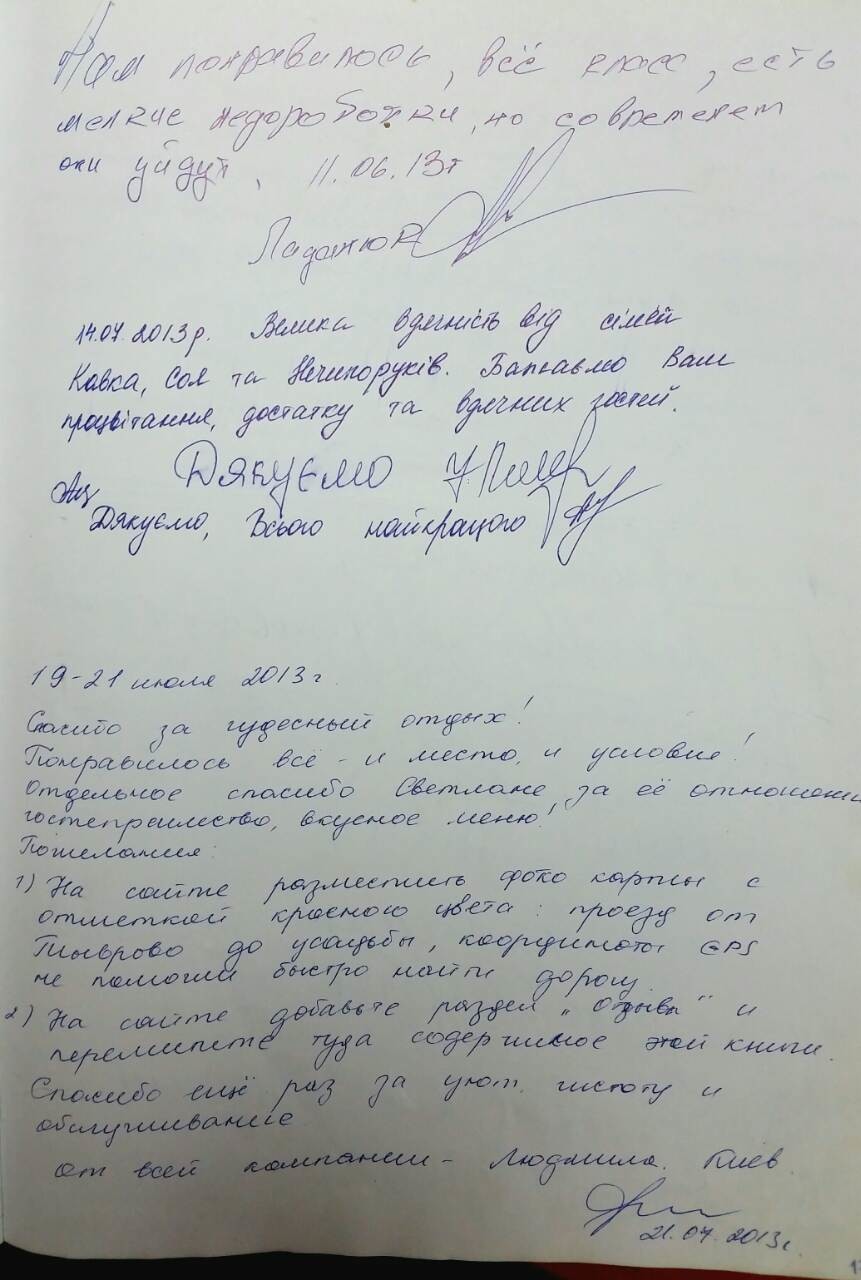 Нам понравилось, всё класс, есть
мелкие недоработки, но современем
они уйдут. 11.06.13г
Ладанюк
14.07.2013р. Велика вдячність від сімей
Кавка, Соя та Нечипоруків. Бажаємо Вам
процвітання, достатку та вдячних гостей.
Дякуємо
Дякуємо, Всього найкращого
19-21 июля 2013г.
Спасибо за чудесный отдых!
Понравилось всё - и место, и условия!
Отдельное спасибо Светлане за её отношение
гостеприимство, вкусное меню!
Пожелания:
1) На сайте разместить фото карты с
отметкой красного цвета: проезд от
Тыврово до усадьбы, координаты GPS
не помогли быстро найти дорогу.
2) На сайте добавьте раздел „Отзывы" и
перепишите туда содержимое этой книги.
Спасибо ещё раз за уют, чистоту и
обслуживание
от всей компании - Людмила. Киев.
21.07.2013г.